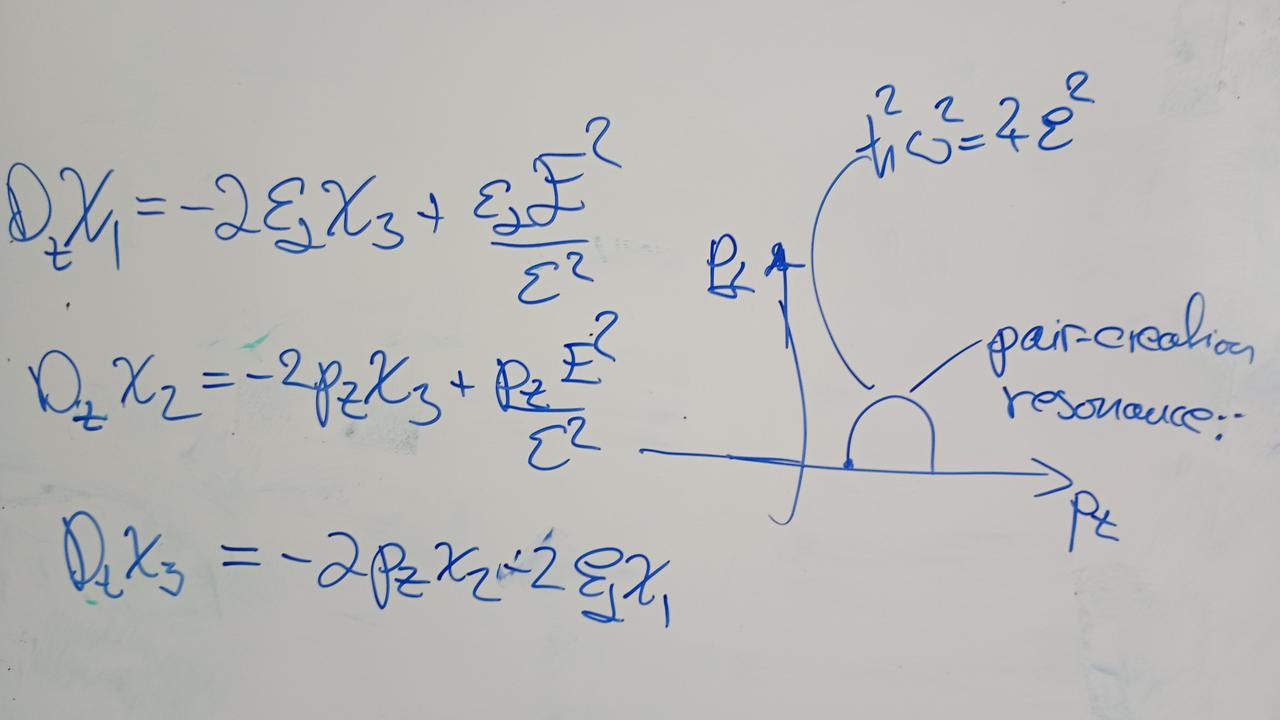 D_z χ_1 = -2ε_⊥ χ_3 + ε_⊥ E^2 / ε^2
D_z χ_2 = -2p_z χ_3 + p_z E^2 / ε^2
D_t χ_3 = -2p_z χ_2 - 2 ε_⊥ χ_1
ħ^2 ω^2 = 4 ε^2
p_⊥
pair-creation
resonance:
p_z